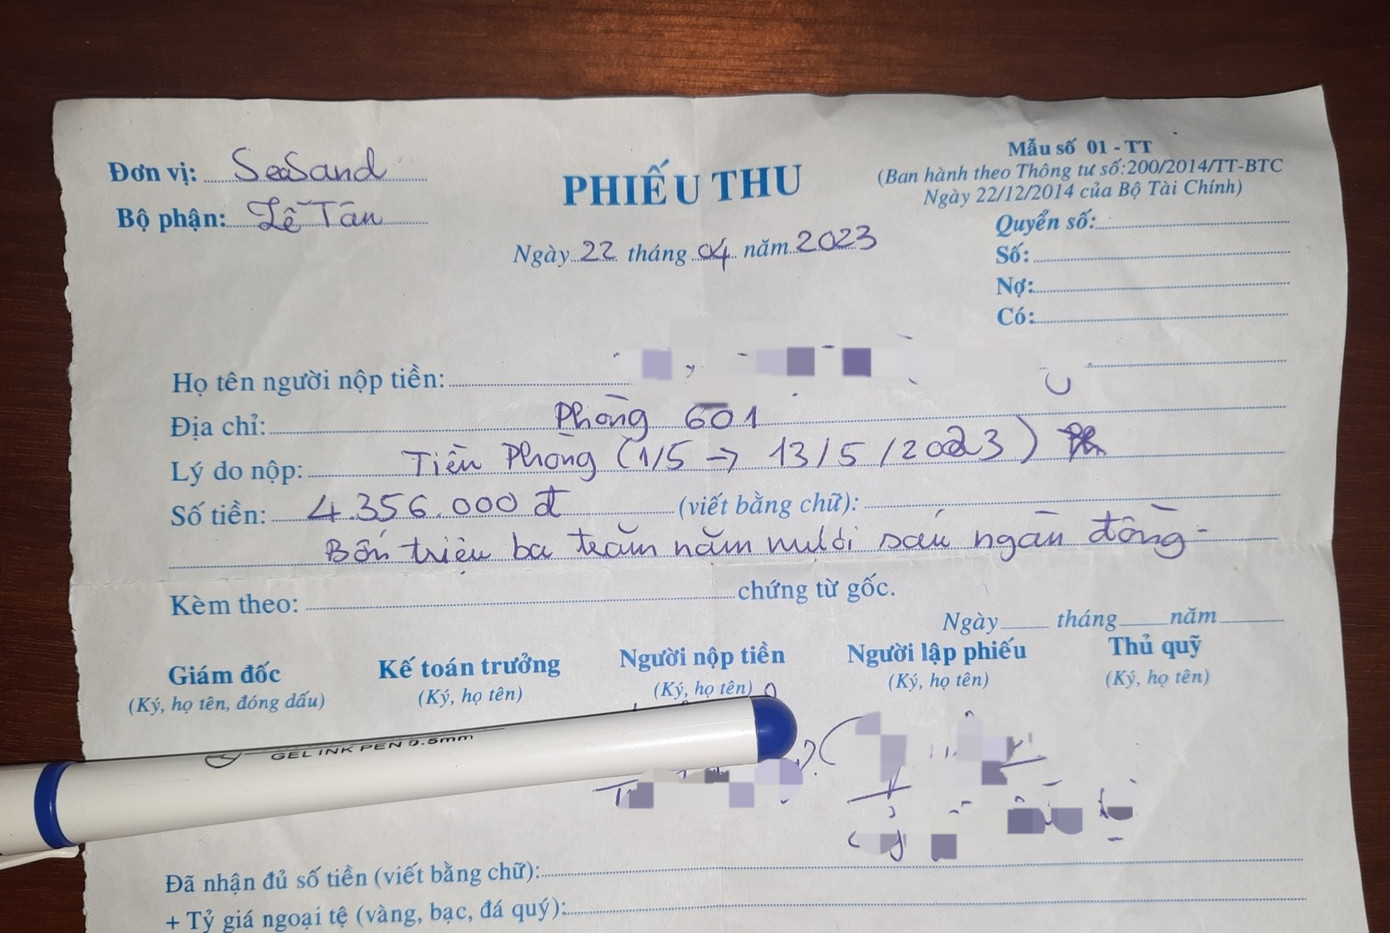 Đơn vị: SeaSand
Bộ phận: Lễ Tân
PHIẾU THU
Ngày 22 tháng 04 năm 2023
Mẫu số 01 - TT
(Ban hành theo Thông tư số:200/2014/TT-BTC
Ngày 22/12/2014 của Bộ Tài Chính)
Quyển số:
Số:
Nợ:
Có:
Họ tên người nộp tiền:
Địa chỉ: Phòng 601
Lý do nộp: Tiền Phòng (1/5 → 13/5/2023)
Số tiền: 4.356.000 đ (viết bằng chữ):
Bốn triệu ba trăm năm mươi sáu ngàn đồng -
Kèm theo: chứng từ gốc.
Ngày tháng năm
Giám đốc Kế toán trưởng Người nộp tiền Người lập phiếu Thủ quỹ
(Ký, họ tên, đóng dấu) (Ký, họ tên) (Ký, họ tên) (Ký, họ tên) (Ký, họ tên)
GEL INK PEN 0.5mm
Đã nhận đủ số tiền (viết bằng chữ):
+ Tỷ giá ngoại tệ (vàng, bạc, đá quý):